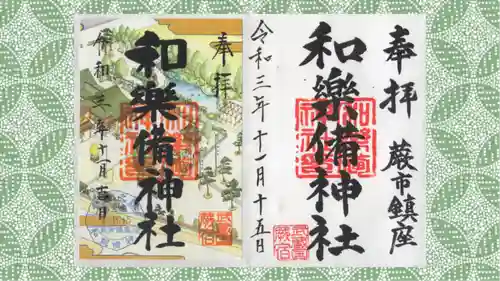 奉拝
蕨市鎮座
和樂備神社
令和三年十一月十五日
武蔵
蕨宿
奉拝
和樂備神社
令和三年十一月吉日
武蔵
蕨宿